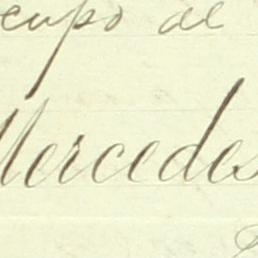 cupo de
Mercedes